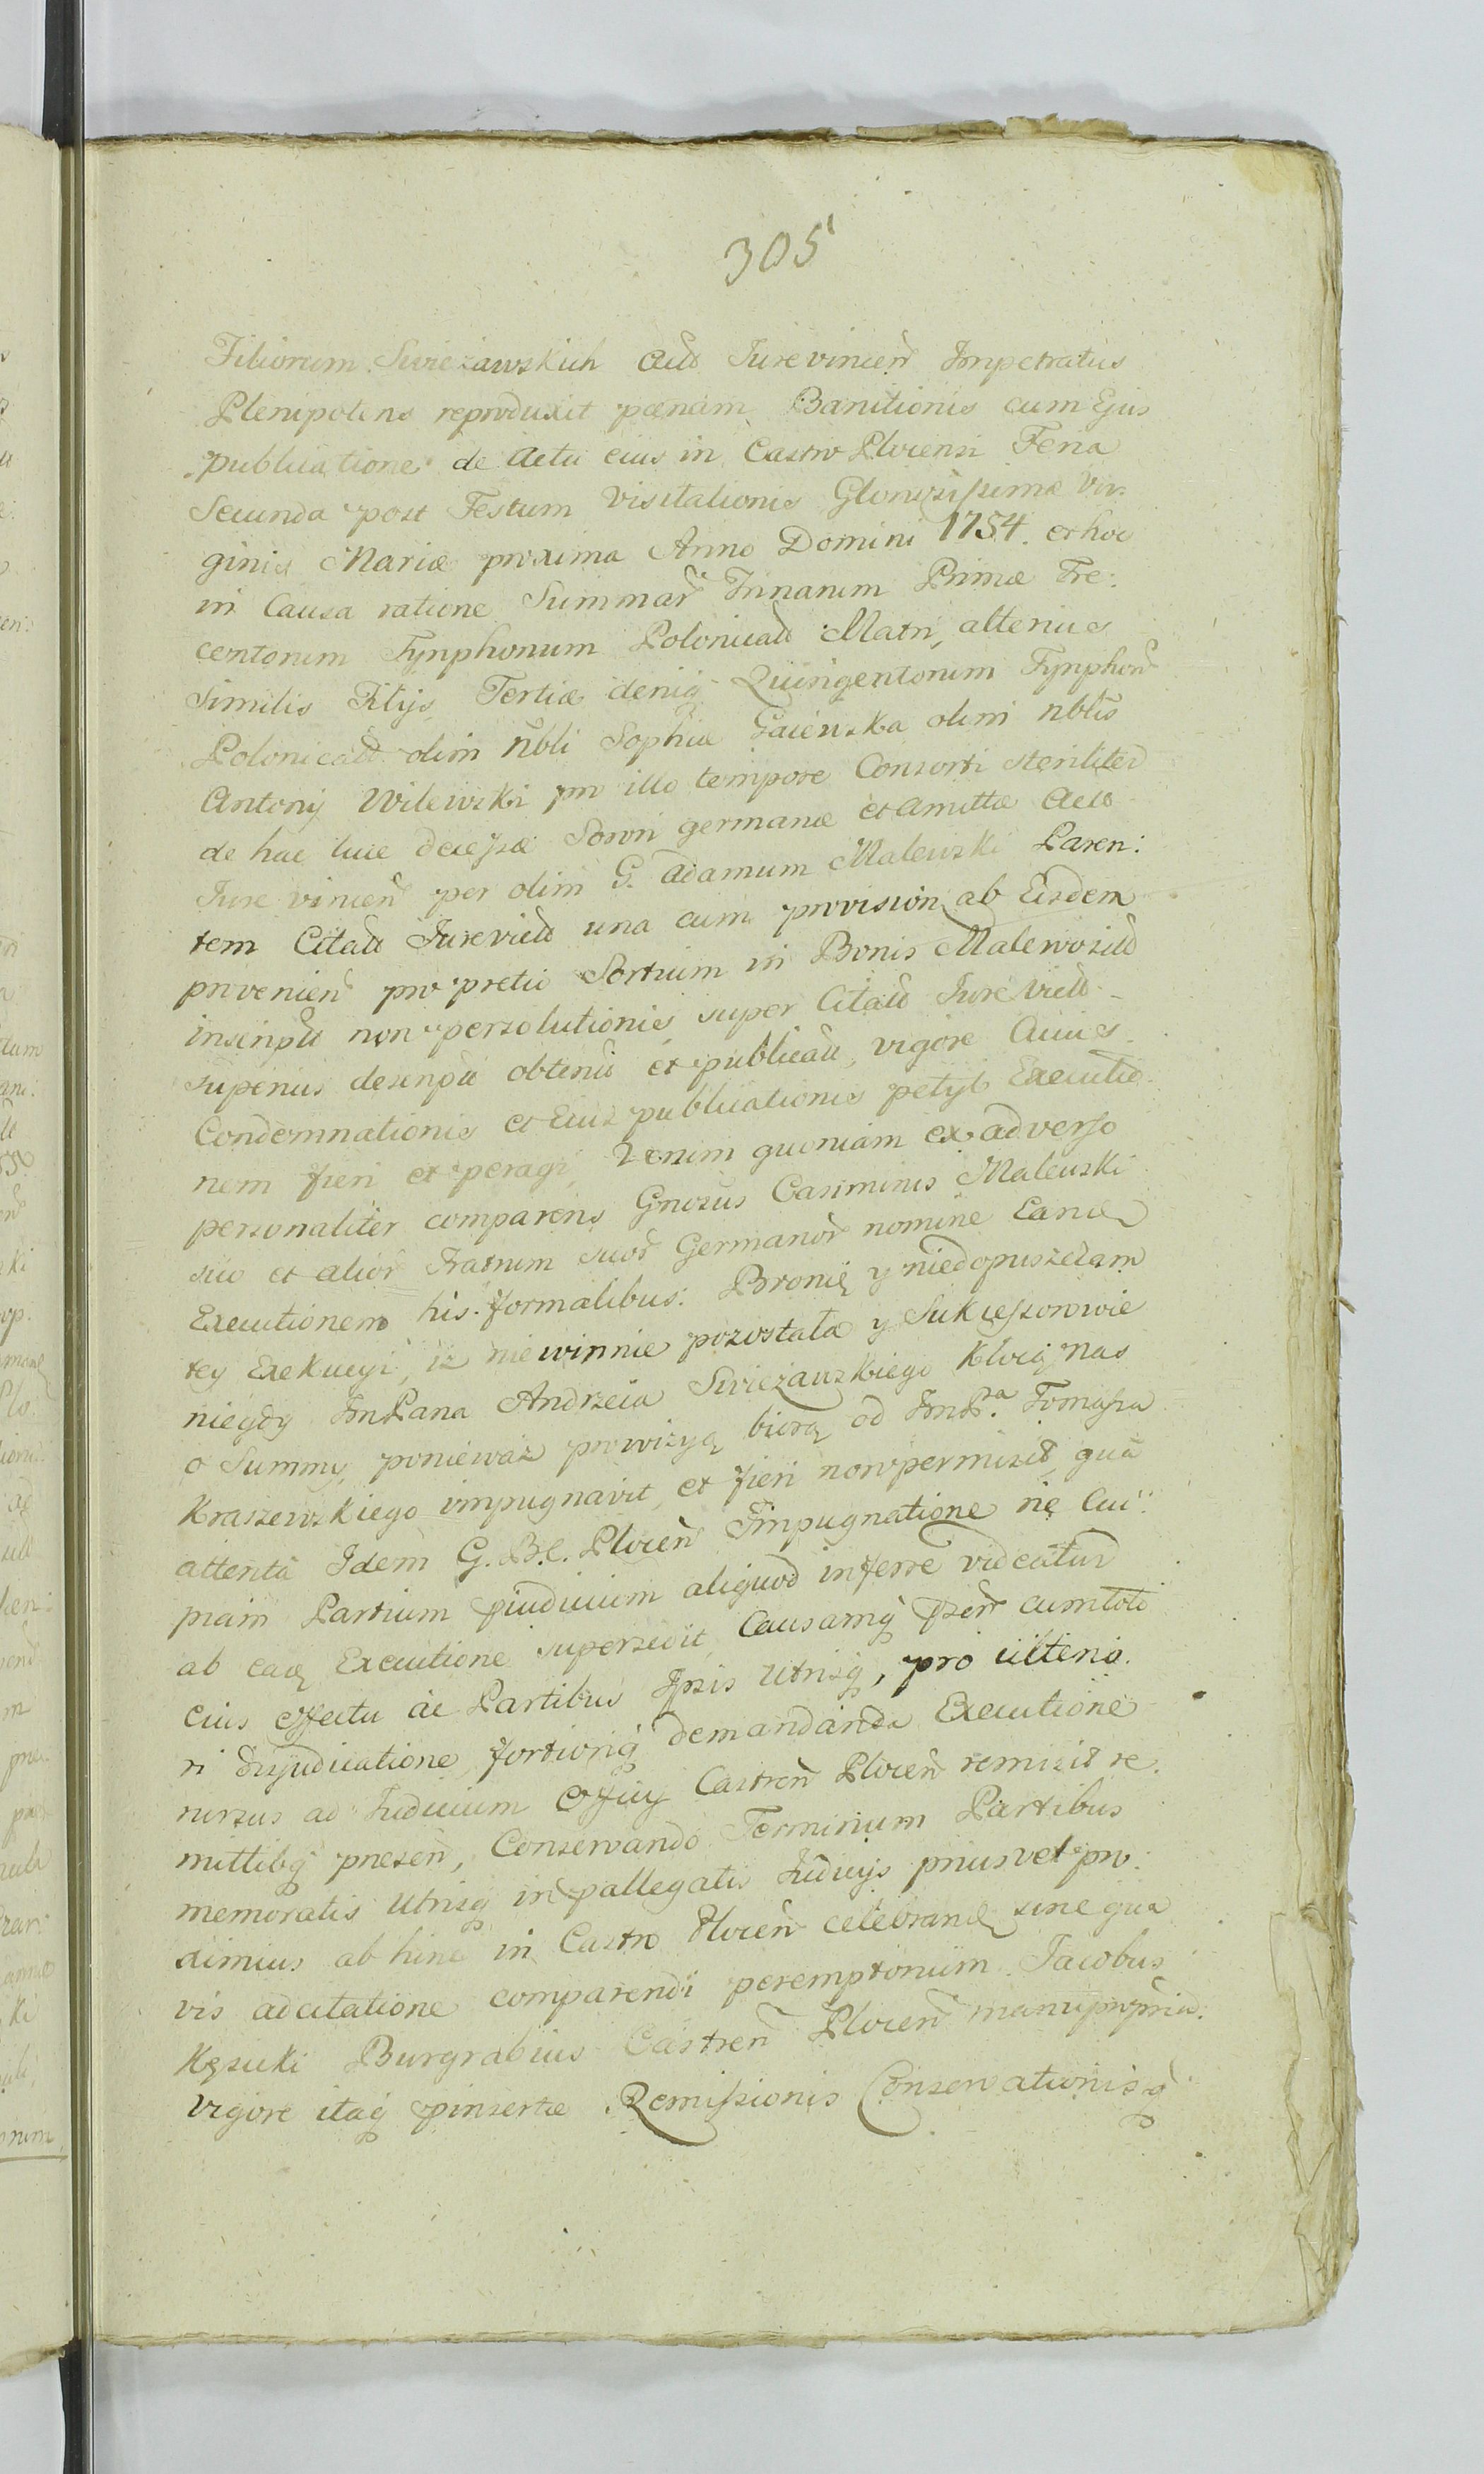 305
Filiorum Swieżawskich Actt Jurevincen Impetratus
Plenipotens reproduxit pœnam Banitionis cum Ejus
publicatione de Actu eius in Castro Plocensi Feria
Secunda post Festum Visitationis Gloriosissimæ Vir-
ginis Mariæ proxima Anno Domini 1754. et hoc
in Causa ratione Summar Trinarum Primæ Tre:
centorum Tynphonum Polonicall Matri, alterius
Similis Filijs, Tertiæ deniq Quingentorum Tynphon
Polonicall olim nbli Sophiæ Gaiewska olim nblis
Antonij Wilewski pro illo tempore Consorti steriliter
de hac luce decessæ Sorori germanæ et Amittæ Actt
Jure vincen per olim G. Adamum Malewski Paren:
tem Citatt Jurevictt una cum provision ab Eisdem
provenien pro pretio Sortium in Bonis Malewo sitt
inscriptt non persolutionis super Citatt Jure Victt
superius descriptt obtentt et publicatt, vigore Cuius
Condemnationis et Eius publicationis petyt Executio
nem fieri et peragi, Verum quoniam ex adverso
personaliter comparens Gnosus Casimirus Malewski
suo et alior Fratrum suor Germanor nomine Eand
Executionem his formalibus: Bronię y niedopuszczam
tey Exekucyi, iż niewinnie pozostała y Sukcessorowie
niegdy ImPana Andrzeia Swieżawskiego kłocą nas
o Summy, ponieważ prowizyą biorą od ImP.ª Tomasza
Kraszewskiego vimpugnavit, et fieri non permisit, quâ
attentâ Idem G. B. C. Plocen Impugnatione ne Cui:
piam Partium pjudicium aliquod inferre videatur
ab ead Executione supersedit, Causamq psen cum toto
eius effectu ac Partibus Ipsis Utrisq, pro ulterio.
ri disjudicatione, fortiorig demandanda Executione
rursus ad Judicium Officij Castren Plocen remisit re.
mittitq presen, Conservando Terminum Partibus
memoratis Utrisq in pallegatis Judicijs prius vel pro:
ximius ab hinc in Castro Plocen celebrand sine qua
vis adcitatione comparendi peremptorium. Jacobus
Kęsicki Burgrabius Castren Plocen manu propria.
Vigore itaq pinsertæ Remissionis Conservationisq